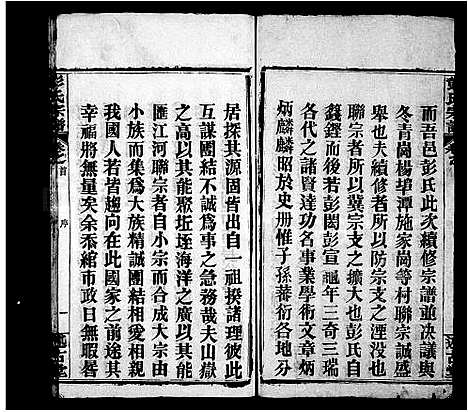 而吾邑彭氏此次續修宗譜並决議與
冬青崗楊埠潭施家崗等村聯宗誠盛
舉也夫續修者所以防宗支之湮没也
聯宗者所以冀宗支之擴大也彭氏自
籛鏗而後若彭閎彭宣
年三奇自三瑞
各代之諸賢達功名事業學術文章炳
炳麟麟昭於史册惟子孫蕃衍各地分
居探其源固皆出自一祖揆諸理彼此
互謀團結不誠爲事之急務哉夫山嶽
之高以其能聚坵垤海洋之廣以其能
匯江河聯宗者自小宗而合成大宗由
小族而集爲大族精誠團結相愛相親
我國人若皆趨向在此國家之前途其
幸福將無量矣余忝綰市政日無暇晷
彭氏宗譜
卷之首
序
一
述古堂